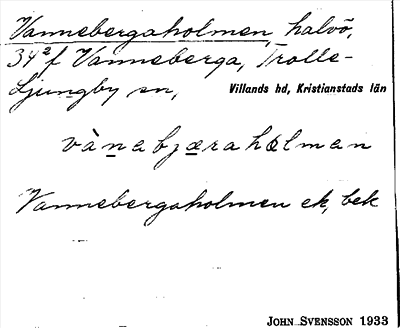 Vannebergaholmen, halvö,
34²f Vanneberga, Trolle-
Ljungby sn, Villands hd, Kristianstads län
vànabjæraholman
Vannebergaholmen ek, bek
JOHN SVENSSON 1933